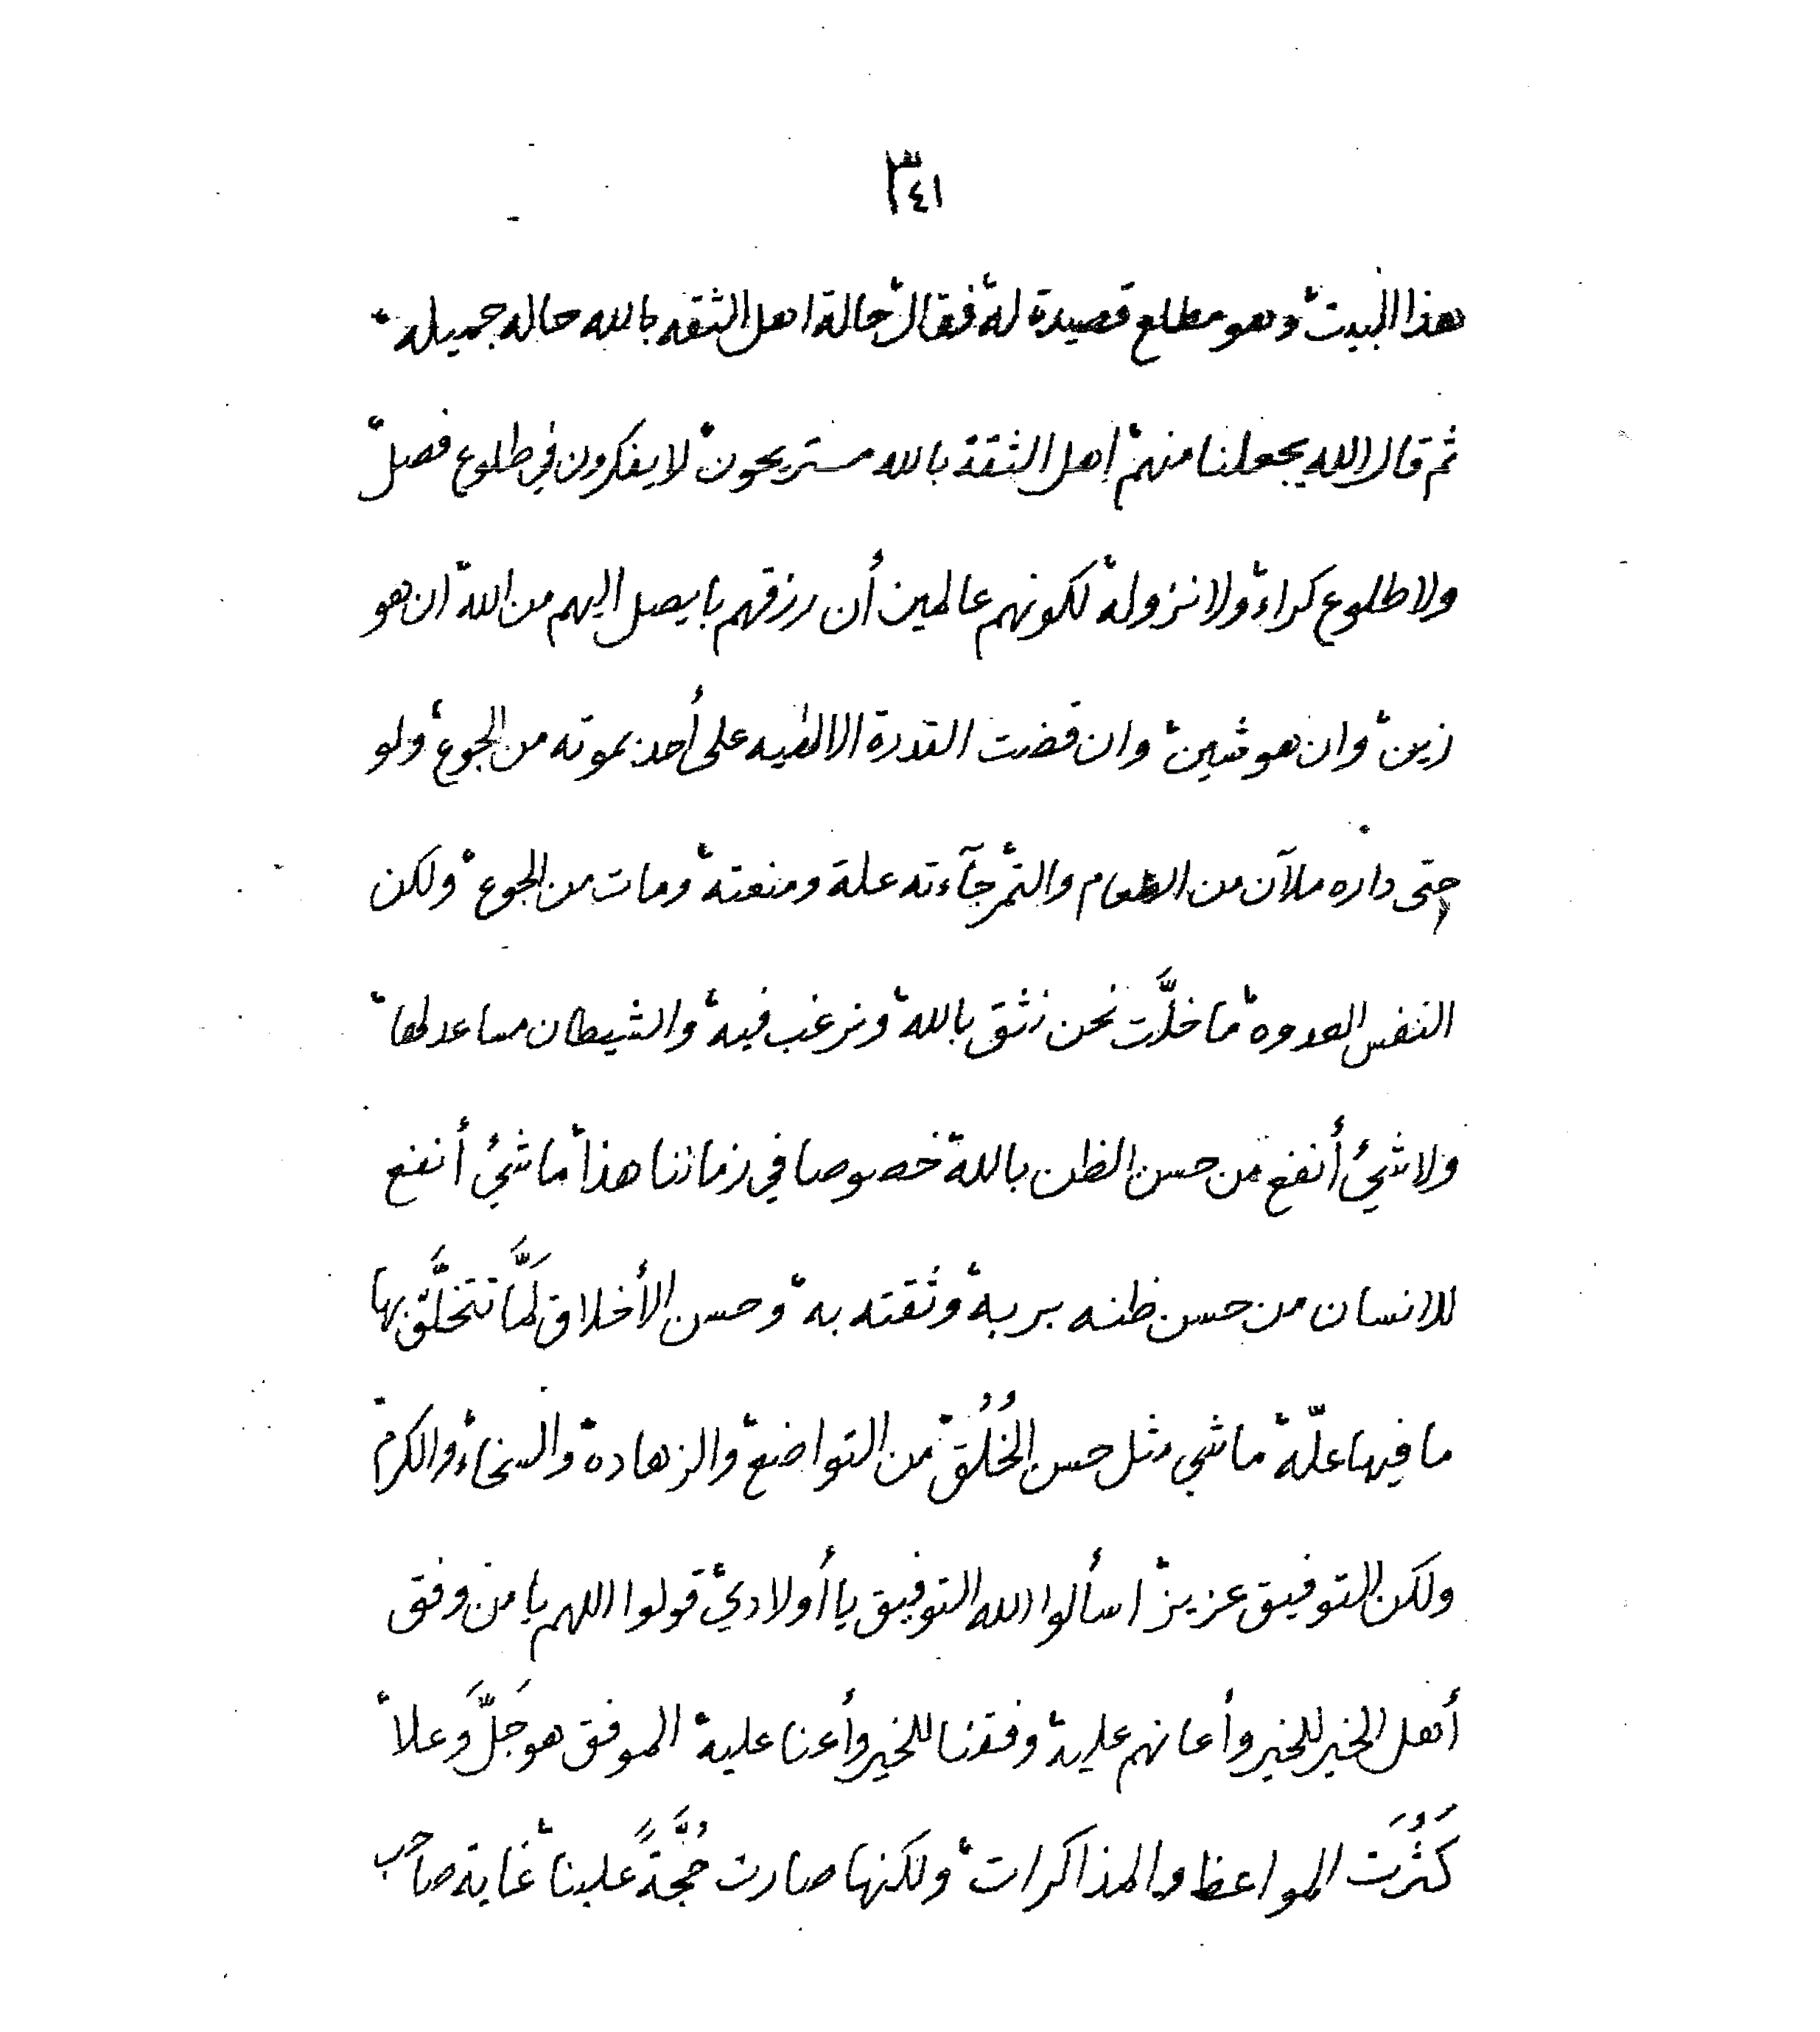 ٣٤١
هذا البيت، وهو مطلع قصيدة له، فقال، حالة اهل الثقه بالله حاله جميله،
ثم قال الله يجعلنا منهم، اهل الثقة بالله مستريحون، لا يفكرون في طلوع فصل،
ولا طلوع كراء، ولا نزوله، لكونهم عالمين أن رزقهم بايصل اليهم من الله، ان هو
زين، وان هو شين، وان قضت القدرة الالهيه على أحد بموته من الجوع، ولو
حتى داره ملآن من الطعام والتمر، جآءته علة ومنعته، ومات من الجوع، ولكن
النفس العدوه، ما خلَّت نحن نثق بالله، ونرغب فيه، والشيطان مساعد لها،
ولا شيئ أنفع من حسن الظن بالله، خصوصا في زماننا هذا، ما شيئ أنفع
للانسان من حسن ظنه بربه، وثقته به، وحسن الأخلاق لَمَّا تتخلَّق بها
ما فيها علّة، ما شي مثل حسن الخُلُق، من التواضع، والزهادة، والسخاء، والكرم،
ولكن التوفيق عزيز، اسألوا الله التوفيق يا أولادي، قولوا اللهم يا من وفق
أهل الخير للخير وأعانهم عليه، وفقنا للخير وأعنا عليه، الموفق هو جَلَّ وَعلا،
كَثُرَت المواعظ والمذاكرات، ولكنها صارت حُجَّةً علينا، غاية صاحب